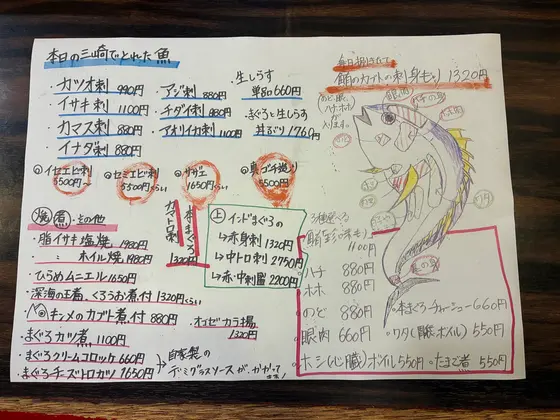 本日の三崎でとれた魚
・カツオ刺 990円
・イサキ刺 1100円
・カマス刺 880円
・イナダ刺 880円
・アジ刺 880円
・チダイ刺 880円
・アオリイカ刺 1100円
・生しらす
単品660円
・まぐろと生しらす
丼ぶり 1760円
イセエビ刺
5500円〜
セミエビ刺
5500円くらい
サザエ
1650円くらい
5500円
焼・煮・その他
・脂イサキ塩焼 1980円
・〃 ホイル焼 1980円
・ひらめムニエル 1650円
・深海の王者、くろうお煮付 1320円くらい
・キンメのカブト煮付 880円
・まぐろカツ煮 1100円
・まぐろクリームコロッケ 660円
・まぐろチーズトロカツ 1650円
→自家製の
デミグラスソースが、かかってます!
・オコゼカラ揚
1320円
本まぐろ
カマトロ刺
1320円
上 インドまぐろの
→赤身刺 1320円
→中トロ刺 2750円
→赤・中刺盛 2200円
毎日捌きたて
鮪のカブトの刺身もり 1320円
のど、眼、
ハチ、ホホ
入ります。
眼肉
ワタ
3種選べる
1100円
ハチ 880円
ホホ 880円
のど 880円
眼肉 660円
ホシ(心臓)ボイル 550円
・本まぐろチャーシュー 660円
・ワタ(豚ボイル) 550円
・たまご煮 550円